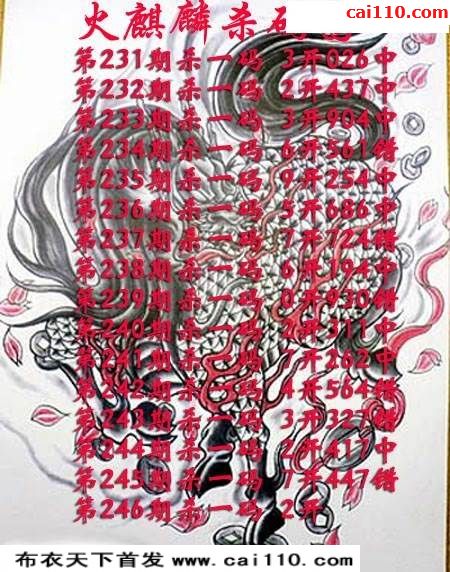 cai110.com
火麒麟杀码
第231期杀一码 3开026中
第232期杀一码 2开437中
第233期杀一码 3开904中
第234期杀一码 6开561错
第235期杀一码 9开254中
第236期杀一码 5开686中
第237期杀一码 7开724错
第238期杀一码 6开194中
第239期杀一码 0开930错
第240期杀一码 2开311中
第241期杀一码 开262中
第242期杀一码 4开564错
第243期杀一码 3开327错
第244期杀一码 2开417中
第245期杀一码 7开447错
第246期杀一码 2开
布衣天下首发 www.cai110.com